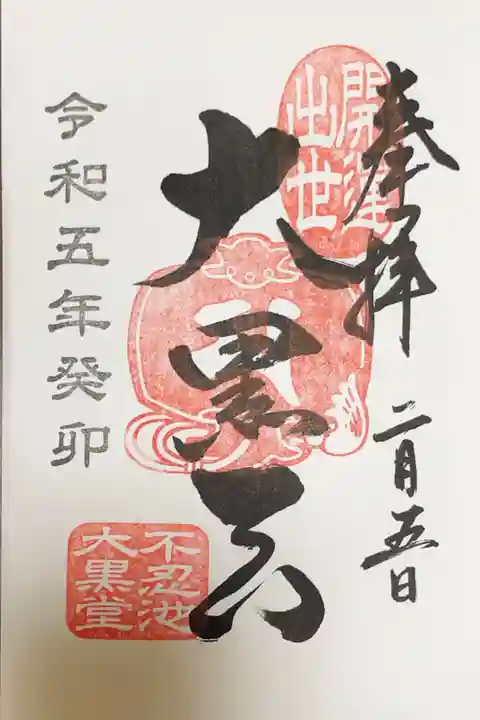 奉拝
二月五日
開運
出世
大黒天
不忍池
大黒堂
令和五年癸卯